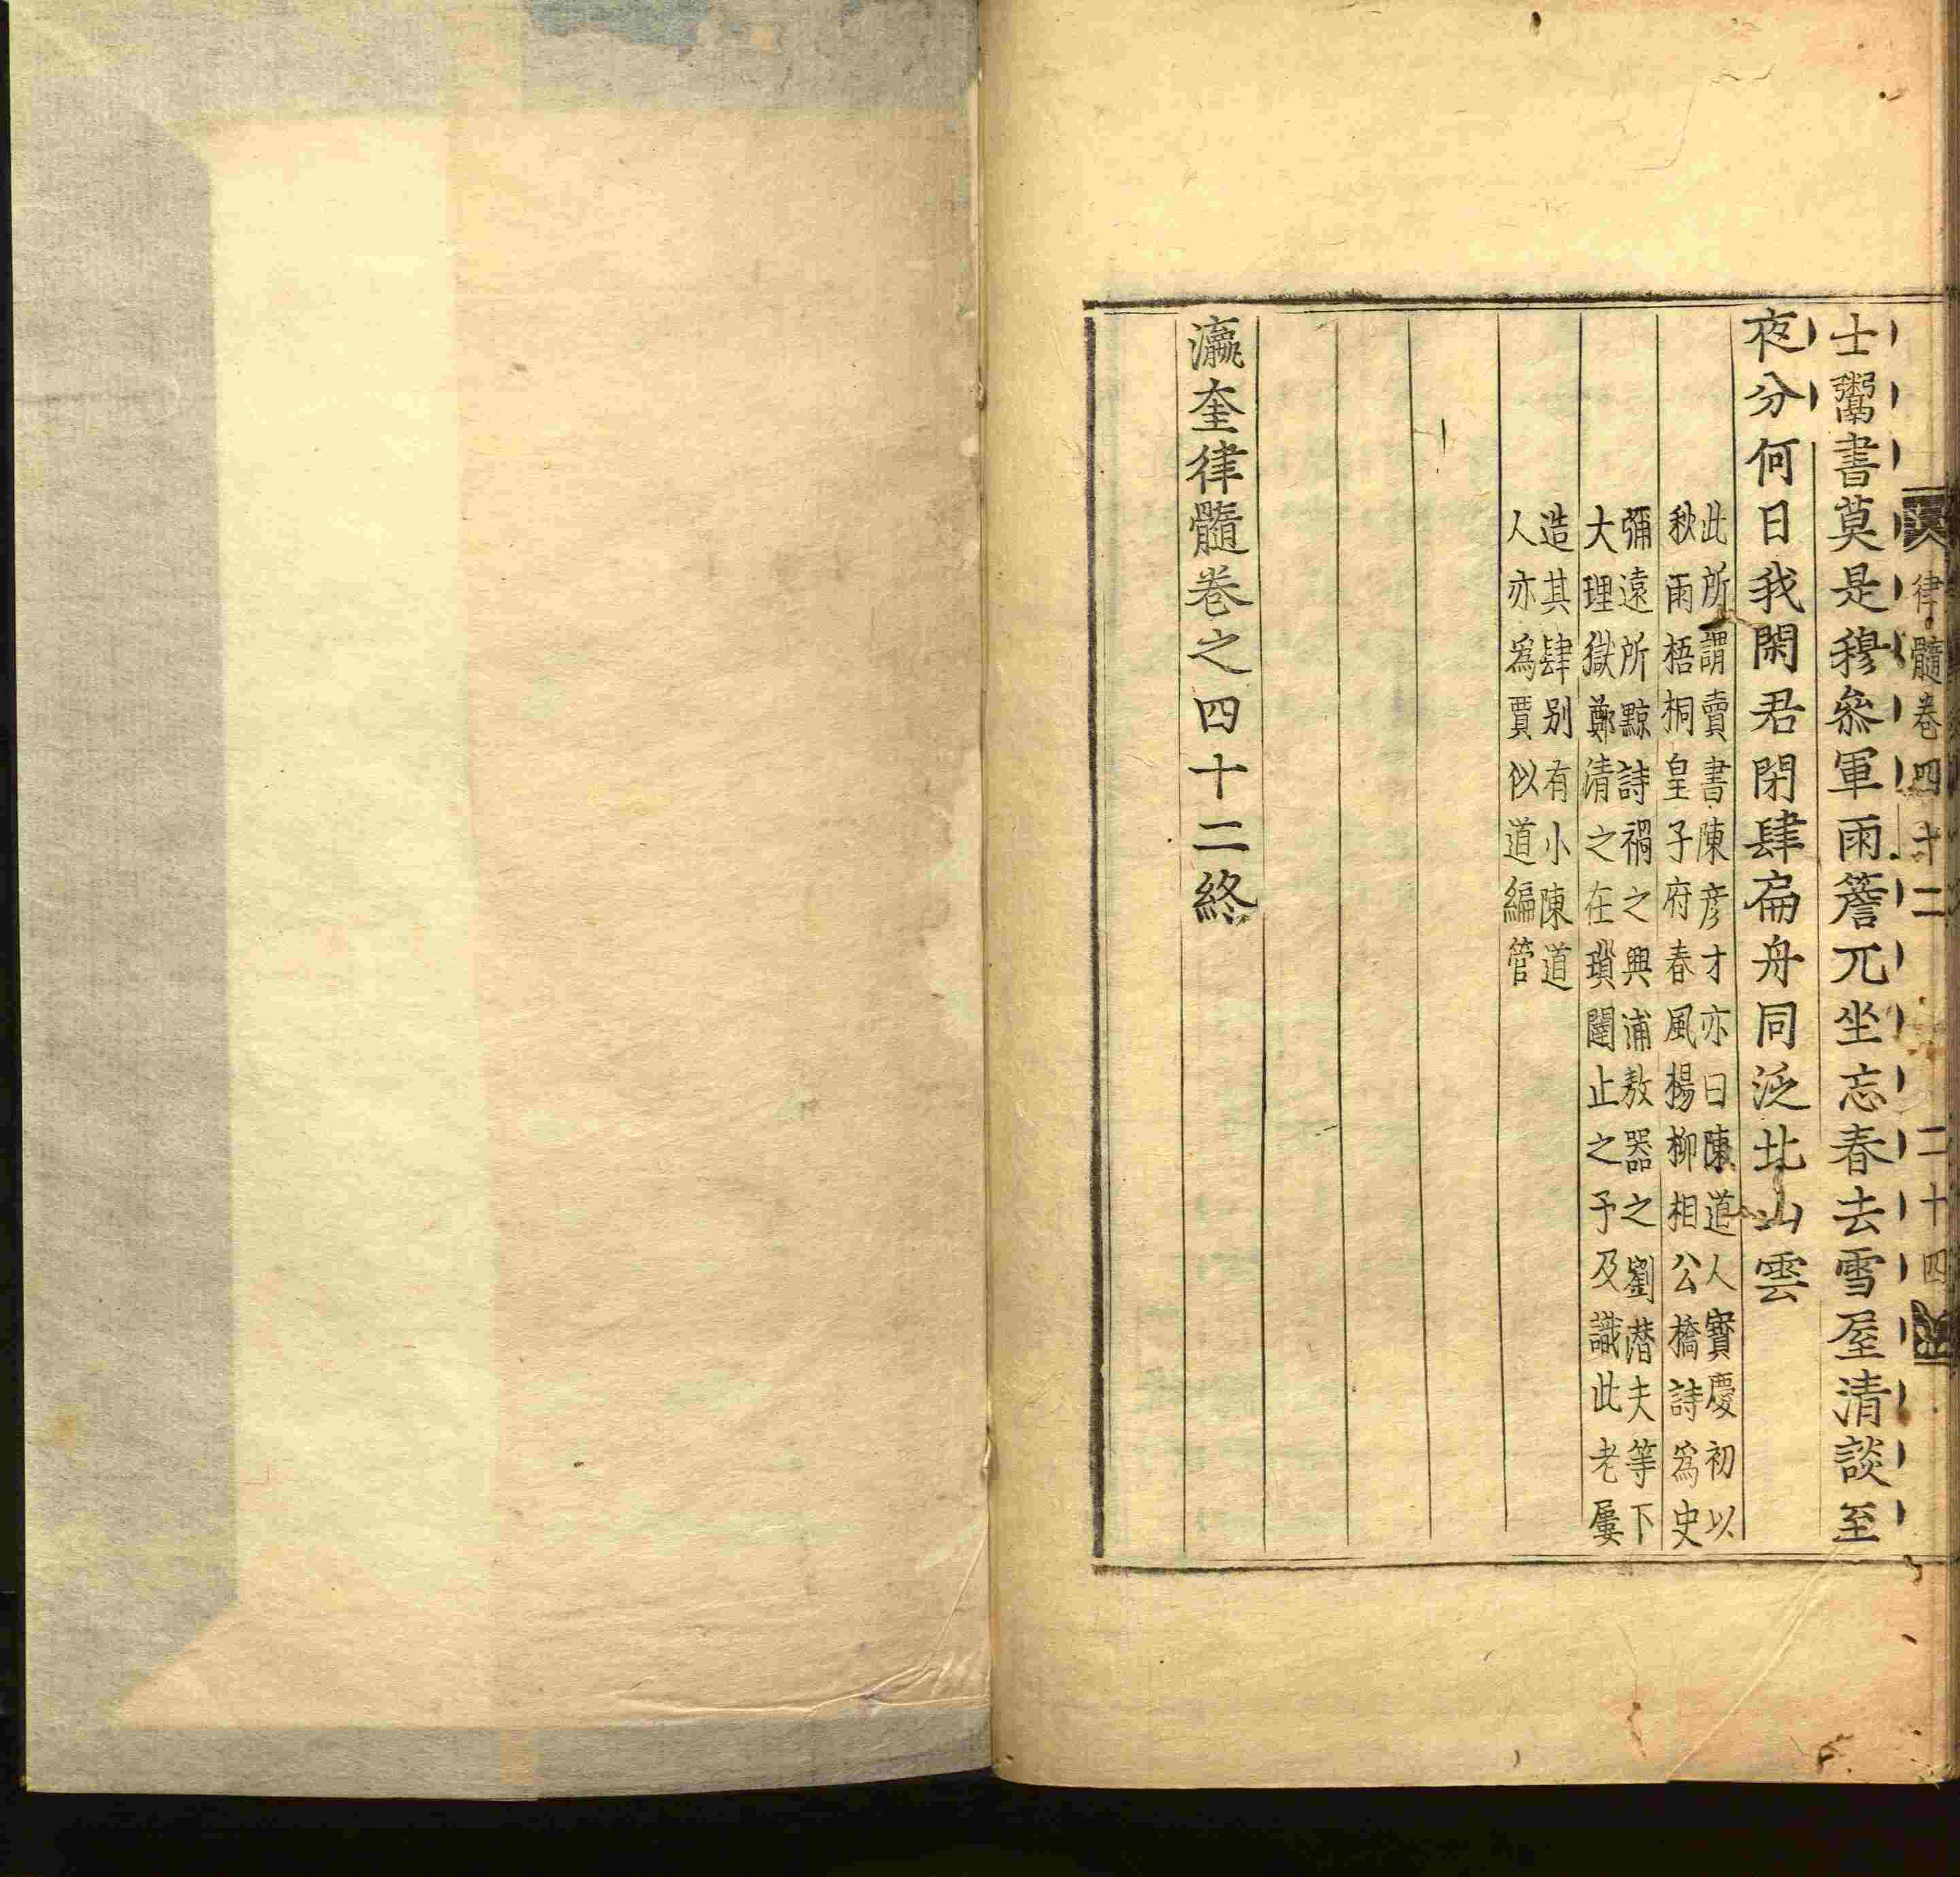 律髓卷四十二 二十四
士鬻書莫是穆叅軍雨簷兀坐忘春去雪屋清談至
夜分何日我閑君閉肆扁舟同泛北山雲
此所謂賣書陳彦才亦曰陳道人寳慶初以
秋雨梧桐皇子府春風楊柳相公橋詩爲史
彌遠所黥詩禍之興浦敖器之劉潜夫等下
大理獄鄭清之在瑣闥止之予及識此老屢
造其肆别有小陳道
人亦爲賈似道編管
瀛奎律髓卷之四十二終